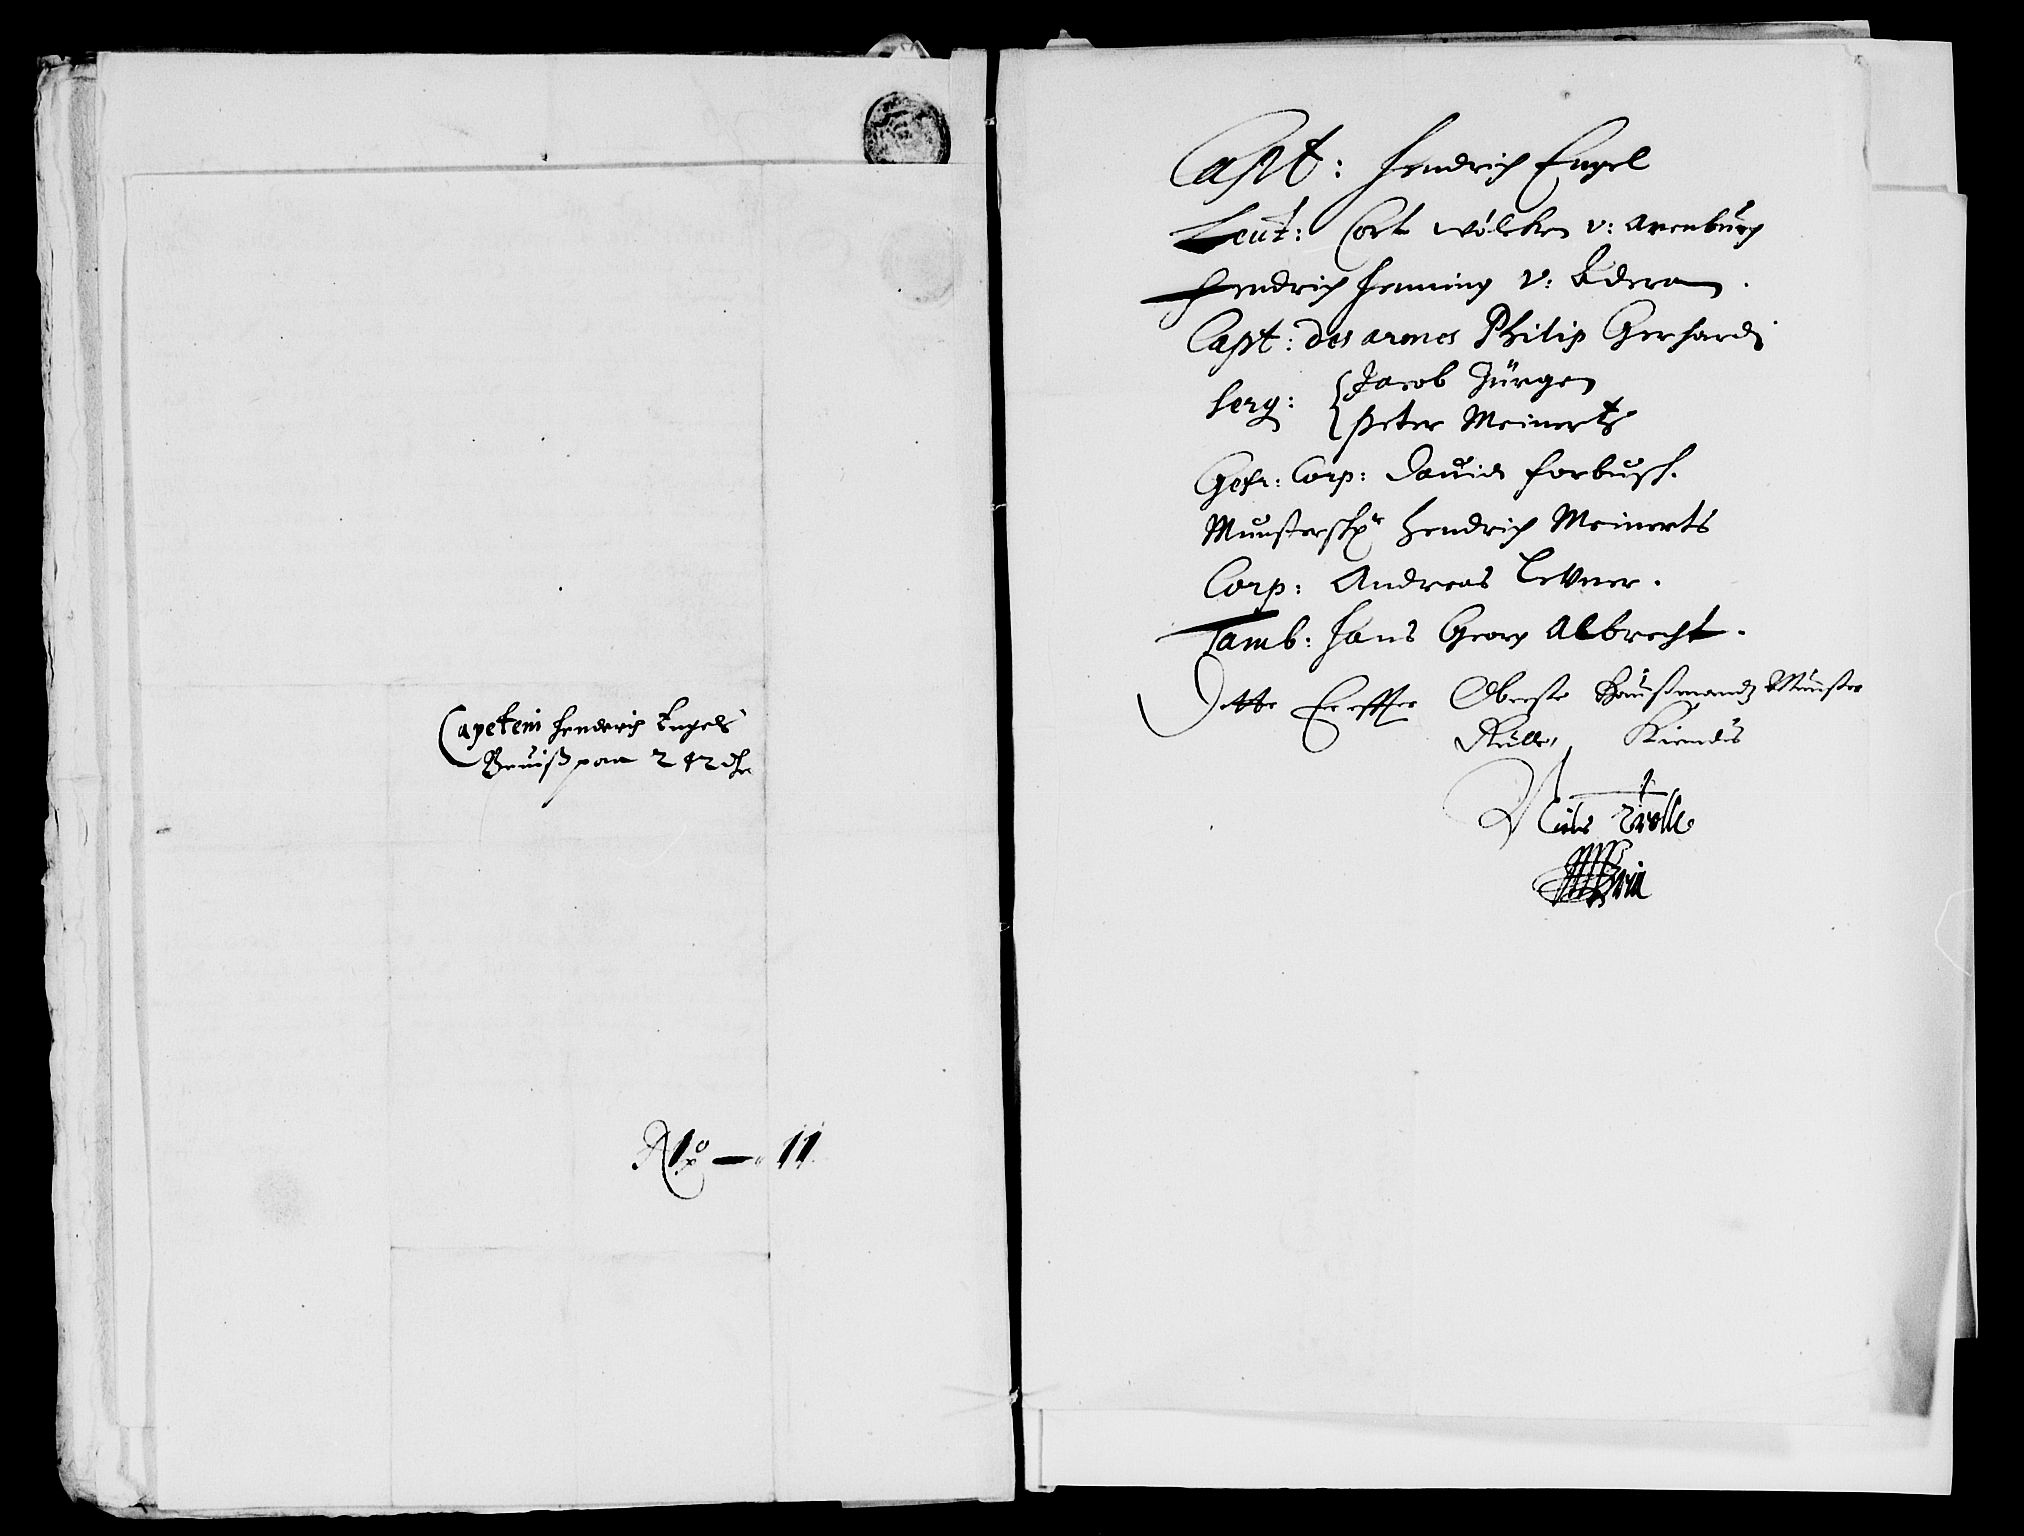 Capetein Henderich Engels
Beuiß paa 242 dlr
No — 11
Capt: Hendrich Engel
Leut: Cort Wölcken v: Arenburg
Hendrich Henning v:
Capt: des armes Philip Gerhardi
Serg: { Jacob Jürgen
Peter Meinerts
Gefr: Corp: Dauid Forbusch.
Munstersch Hendrich Meinerts
Corp: Andreas
Tamb: Hans Georg Albrecht.
Dette Oberste Haußmandz Münster
Rulle, Kiendis
Niels Trolle